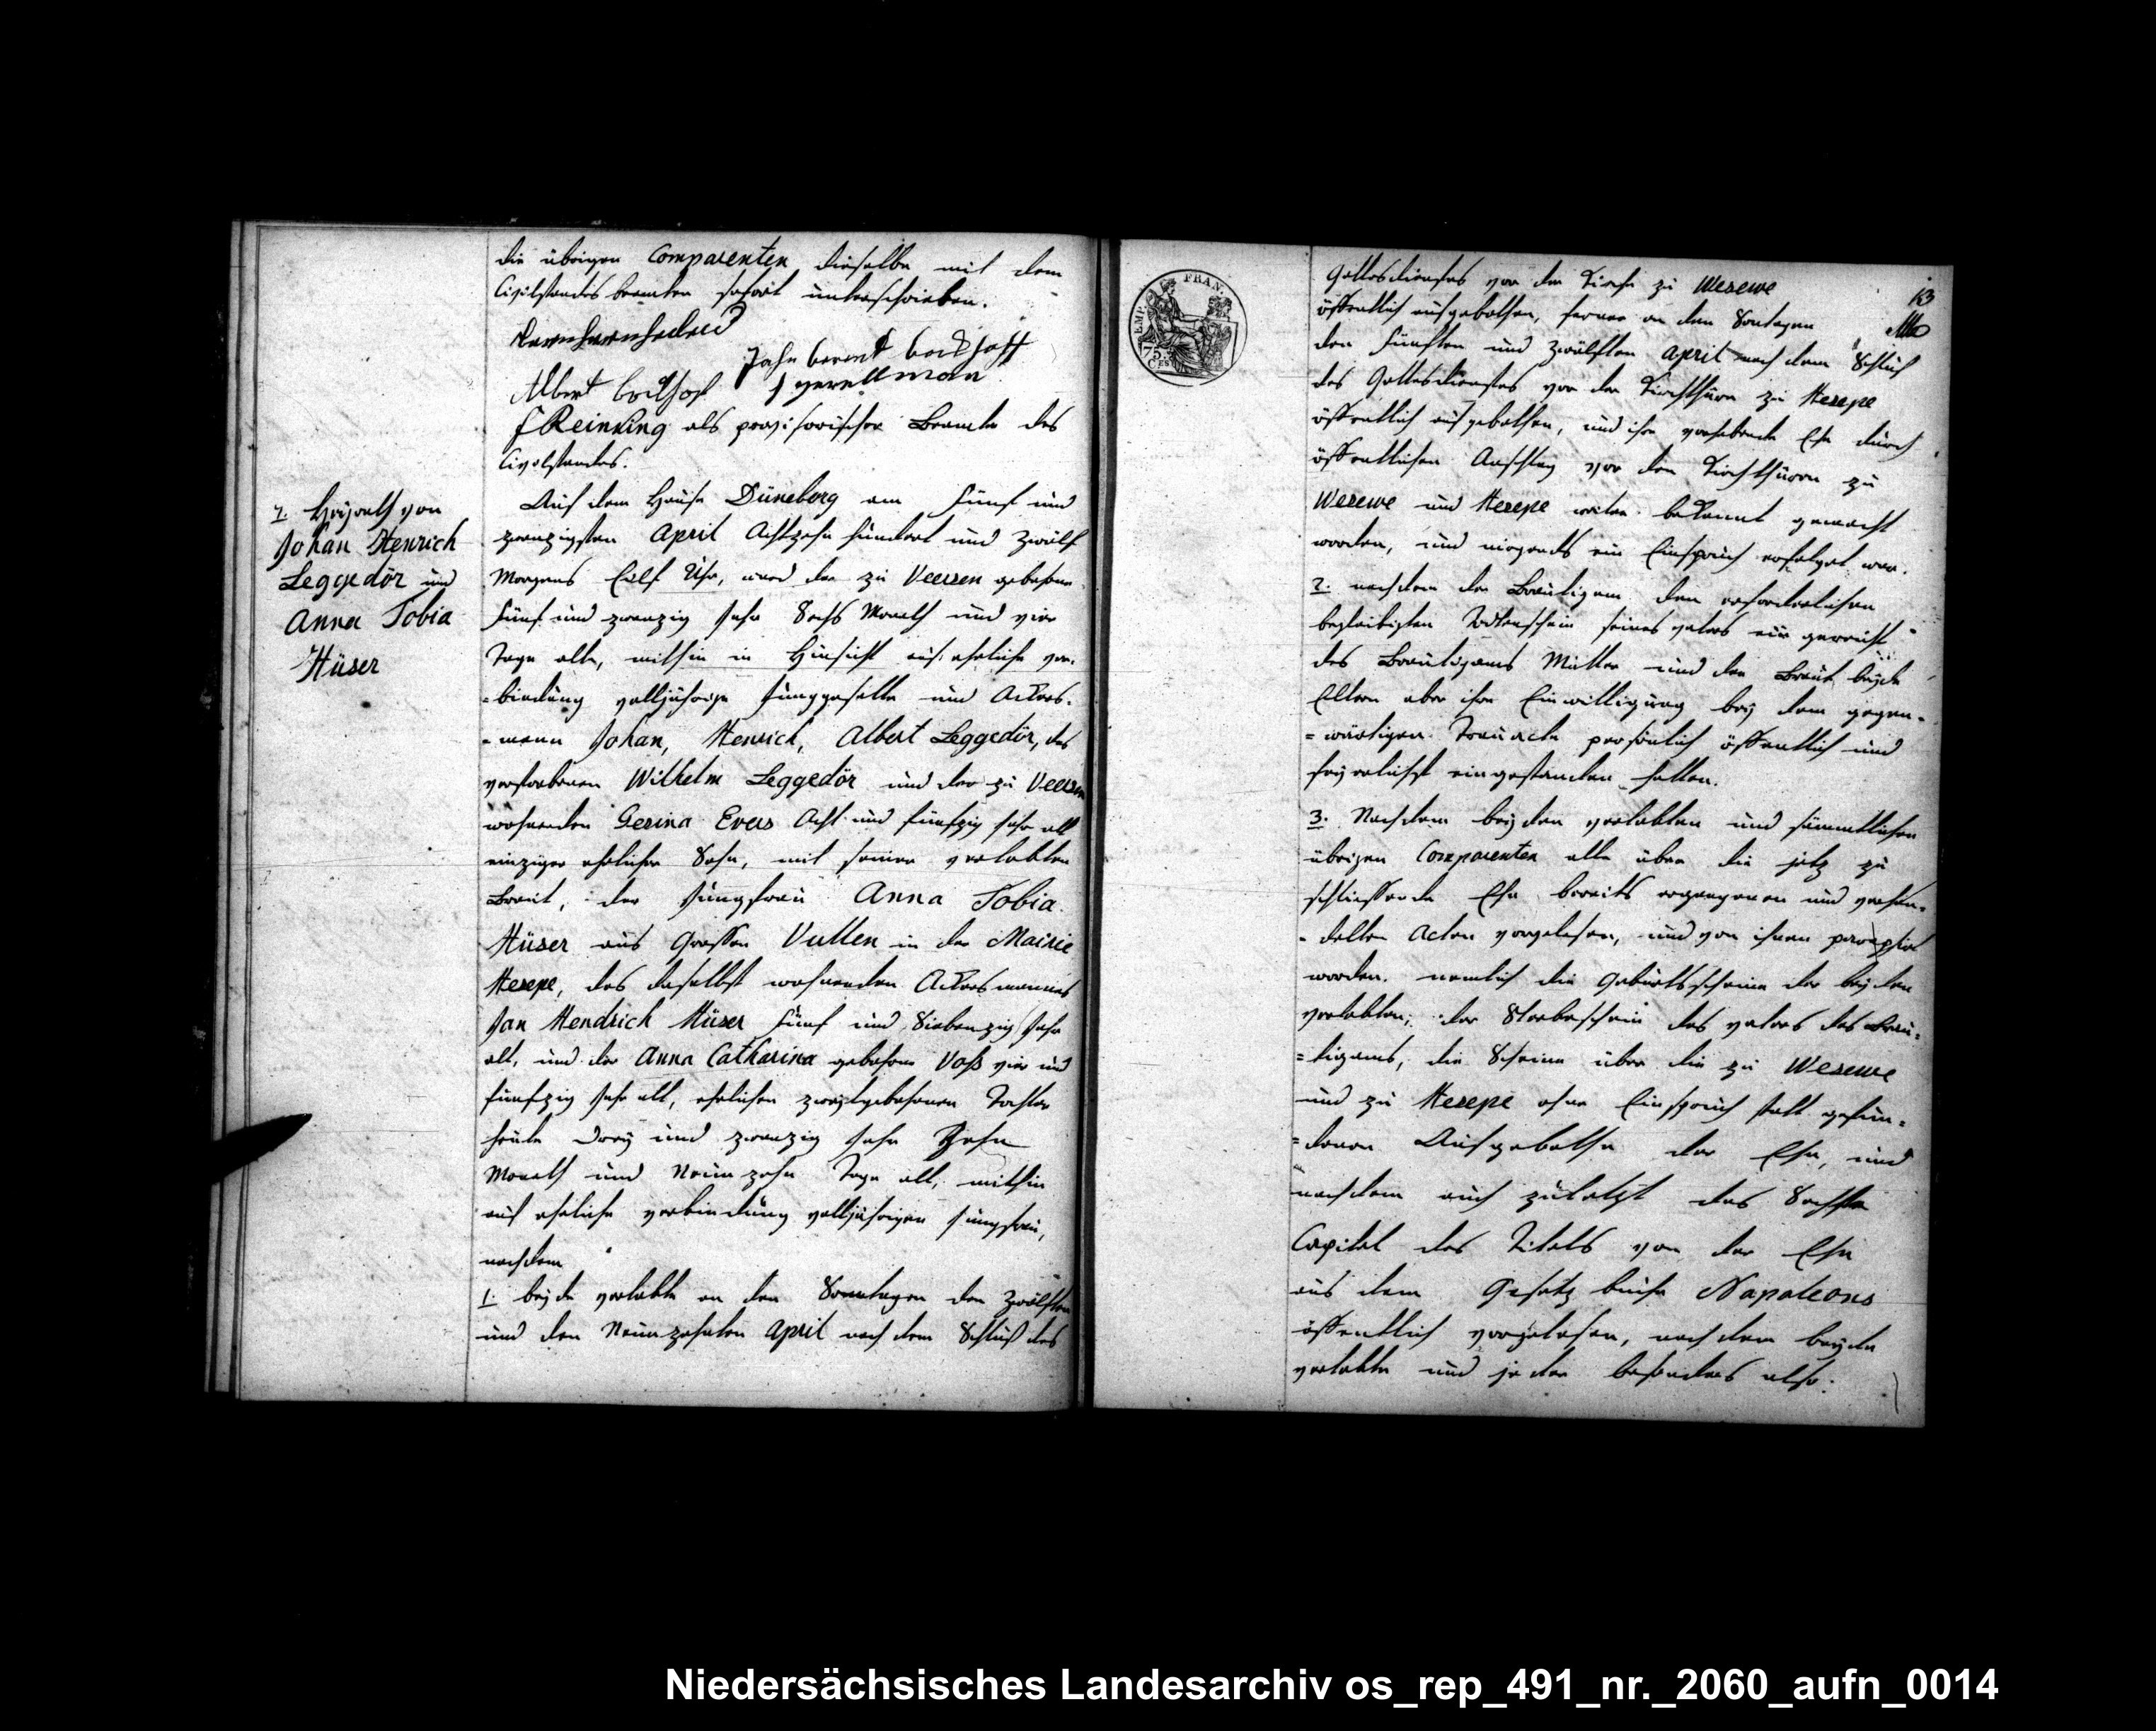 die übrigen Comparenten dieselbe mit dem
Civilstands beamten sofort unterschrieben.
Jahn berent bockhoff
Albert bockhof
f Reinking als provisorischer Beamte des
Civilstandes.
7. Heyrath von
Johan Henrich
Leggedör und
Anna Tobia
Hüser
Auf dem Hause Düneborg am fünf und
zwanzigsten April Achtzehn hundert und zwölf
Morgens Eilf Uhr, ward der zu Veersen gebohrne
fünf und zwanzig Jahr Sechs Monath und vier
Tage alte, mithin in Hinsicht auf eheliche ver-
=bindung volljährige Junggeselle und Ackers-
=mann Johan, Henrich, Albert Leggedör, des
verstorbenen Wilhelm Leggedör und der zu Veersen
wohnenden Gesina Evers Acht und fünfzig Jahr alt
einziger ehelicher Sohn, mit seiner verlobten
Braut, der Jungfrau Anna Tobia
Hüser aus Grossen Vullen in der Mairie
Hesepe, des daselbst wohnenden Ackersmannes
Jan Hendrich Hüser fünf und Siebenzig Jahr
alt, und der Anna Catharina gebohrne Voß vier und
fünfzig Jahr alt, ehelichen zweytgebohrenen Tochter
heute drey und zwanzig Jahr Zehn
Monath und Neun zehn Tage alt, mithin
auf eheliche verbindung volljährigen Jungfrau,
nachdem
1. beyde verlobte an den Sonntagen den zwölften
und den Neunzehnten April nach dem Schluß des
EMP. FRAN.
75
Ces
13
Gottesdienstes vor der Kirche zu Wesewe
öffentlich aufgebothen, ferner an den Sontagen
den fünften und zwölften April nach dem Schluß
des Gottesdienstes vor der Kirchthüre zu Hesepe
öffentlich aufgebothen, und ihre vorhabende Ehe durch
öffentlichen Anschlag vor den Kirchthüren zu
Wesewe und Hesepe weiter bekannt gemacht
worden, und nirgends ein Einspruch erfolgt war.
2. nachdem der Bräutigam den erforderlichen
beglaubigten Todtenschein seines vaters eingereicht
des Bräutigams Mutter und der Braut beyde
Eltern aber ihre Einwilligung bey dem gegen-
=wärtigen Trauacte persönlich öffentlich und
feyerlichst eingestanden hatten.
3. Nachdem beyden verlobten und sämmtlichen
übrigen Comparenten alle über die jetz zu
schliessende Ehe bereits ergangenen und verhan-
=delten Acten vorgelesen, und von ihnen
worden. nemlich die Geburtsscheine der beyden
verlobten; der Sterbeschein des vaters des Bräu-
=tigams, die Scheine über die zu Wesewe
und zu Hesepe ohne Einspruch statt gefun-
=denen Aufgebothe der Ehe, und
nachdem auch zuletzt das Sechste
Capitel des Titels von der Ehe
aus dem Gesetz buche Napoleons
öffentlich vorgelesen, nachdem beyde
verlobte und jeder besonders also:
Niedersächsisches Landesarchiv os_rep_491_nr._2060_aufn_0014